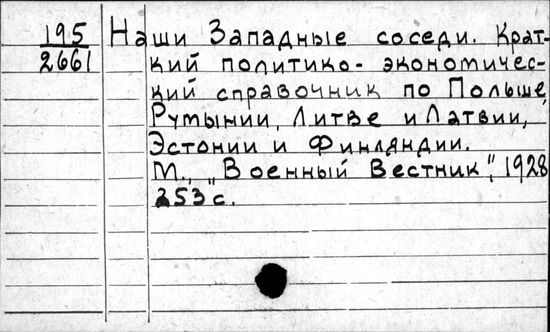 195
2661
Наши Западные соседи. Крат-
кий политико-экономичес-
кий справочник по Польше,
Румынии, Литве и Латвии,
Эстонии и Финляндии.
М., "Военный Вестник", 1928
253 с.